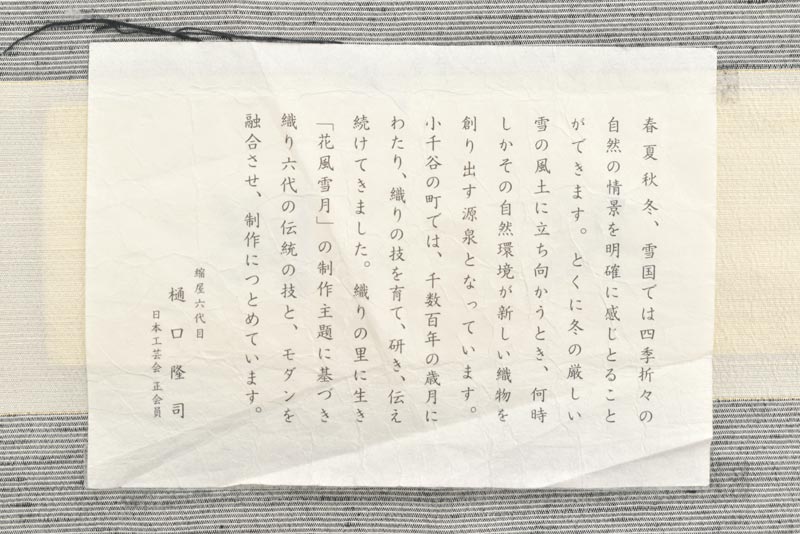 春夏秋冬、雪国では四季折々の
自然の情景を明確に感じとること
ができます。とくに冬の厳しい
雪の風土に立ち向かうとき、何時
しかその自然環境が新しい織物を
創り出す源泉となっています。
小千谷の町では、千数百年の歳月に
わたり、織りの技を育て、研き、伝え
続けてきました。織りの里に生き
「花風雪月」の制作主題に基づき
織り六代の伝統の技と、モダンを
融合させ、制作につとめています。
縮屋六代目
樋口隆司
日本工芸会 正会員